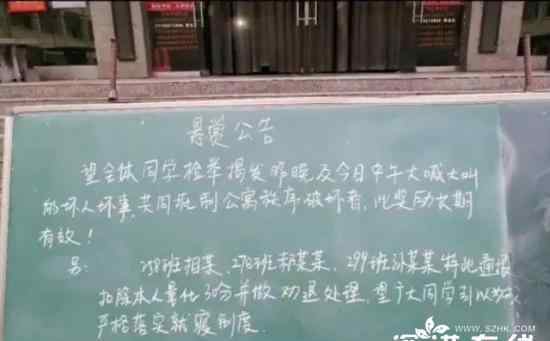 悬赏公告
望全体同学检举揭发昨晚及今日中午大喊大叫
的坏人坏事,共同抵制公寓秩序破坏者,此奖励长期
有效!
另: 258班相某、278班郭某某、299班孙某某特此通报
扣除本人量化30分并做劝退处理,望广大同学引以为戒
严格落实就寝制度.
WWW.SZHK.COM